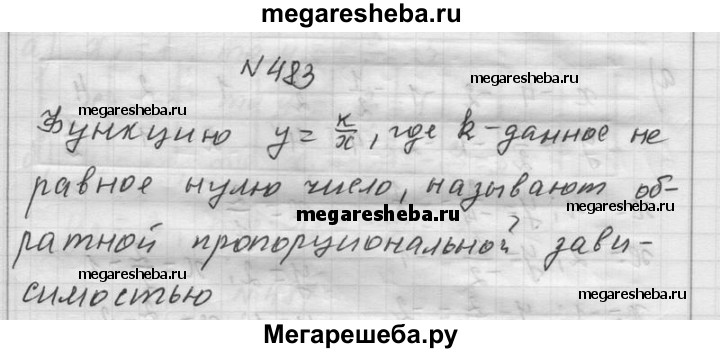 megaresheba.ru
N 483
megaresheba.ru
megaresheba.ru
Функцию y = к/x, где k - данное не
megaresheba.ru
равное нулю число, называют об-
megaresheba.ru
ратной пропорциональной зави-
megaresheba.ru
симостью
megaresheba.ru
Мегарешеба.ру